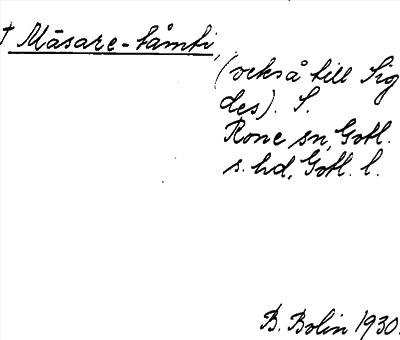 † Māsare-tåmti,
(också till Sig
des). S.
Rone sn, Gotl.
s. hd, Gotl. l.
B. Bolin 1930.